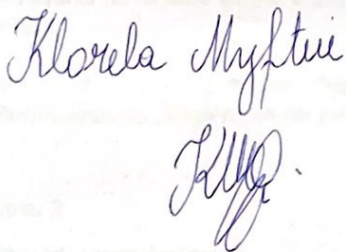 Klorela Myftui